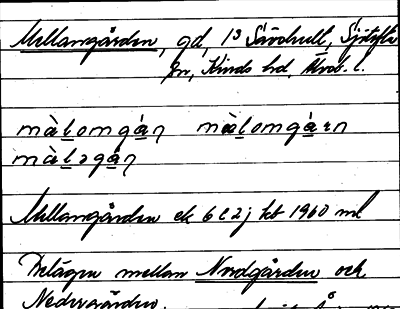 Mellangården, gd, 1³ Sävshult, Sjötofta
sn, Kinds hd, Älvsb. l.
màlomgån màlomgårn
màləgån
Mellangården ek 6C2j kbt 1960 ml
Belägen mellan Nordgården och
Nedergården.